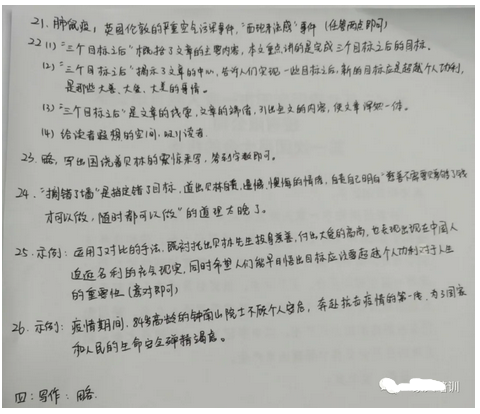 21. 肺鼠疫；英国伦敦的严重空气污染事件，"面现末法感"事件（任答两点即可）
22 (1) "三个目标之后"概括了文章的主要内容，本文重点讲的是完成三个目标之后的目标。
(2) "三个目标之后"揭示了文章的中心，告诉人们实现一些目标之后，新的目标应是超越个人功利，
是那些大善、大爱、大美的事情。
(3) "三个目标之后"是文章的线索，文章的，引出全文的内容，使文章浑然一体。
(4) 给读者遐想的空间，吸引读者.
23. 略，写出围绕着贝林的震惊来写，答到字数即可。
24. "搁错了墙"是指定错了目标，道出贝林自责、遗憾、懊悔的情绪，自责自己明白"慈善不需要只等有了钱
才可以做，随时都可以做"的道理太晚了。
25. 示例：运用了对比的手法，既衬托出贝林先生投身慈善，付出大爱的高尚，也表现出现在中国人
追逐名利的社会现实，同时希望人们能早日悟出目标应该要超越个人功利对于人生
的重要性（意对即可）
26. 示例：疫情期间，84岁高龄的钟南山院士不顾个人安危，奔赴抗击疫情的第一线，为了国家
和人民的生命安全殚精竭虑。
四：写作：略.
培训